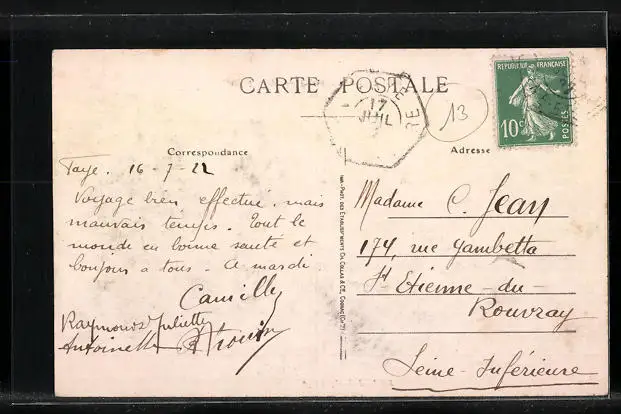 CARTE POSTALE
17
JUIL
13
REPUBLIQUE FRANÇAISE
10c
POSTES
Correspondance
Adresse
Faye. 16-7-22
Voyage bien effectué, mais
mauvais temps. Tout le
monde en bonne santé et
bonjour a tous. A mardi
Camille
Raymond Juliette
Antoinette
IMP.-PHOT. DES ETABLISSEMENTS CH. COLLAS & CIE, COGNAC
Madame C. Jean
174, rue Gambetta
St Etienne-du-
Rouvray
Seine-Inférieure